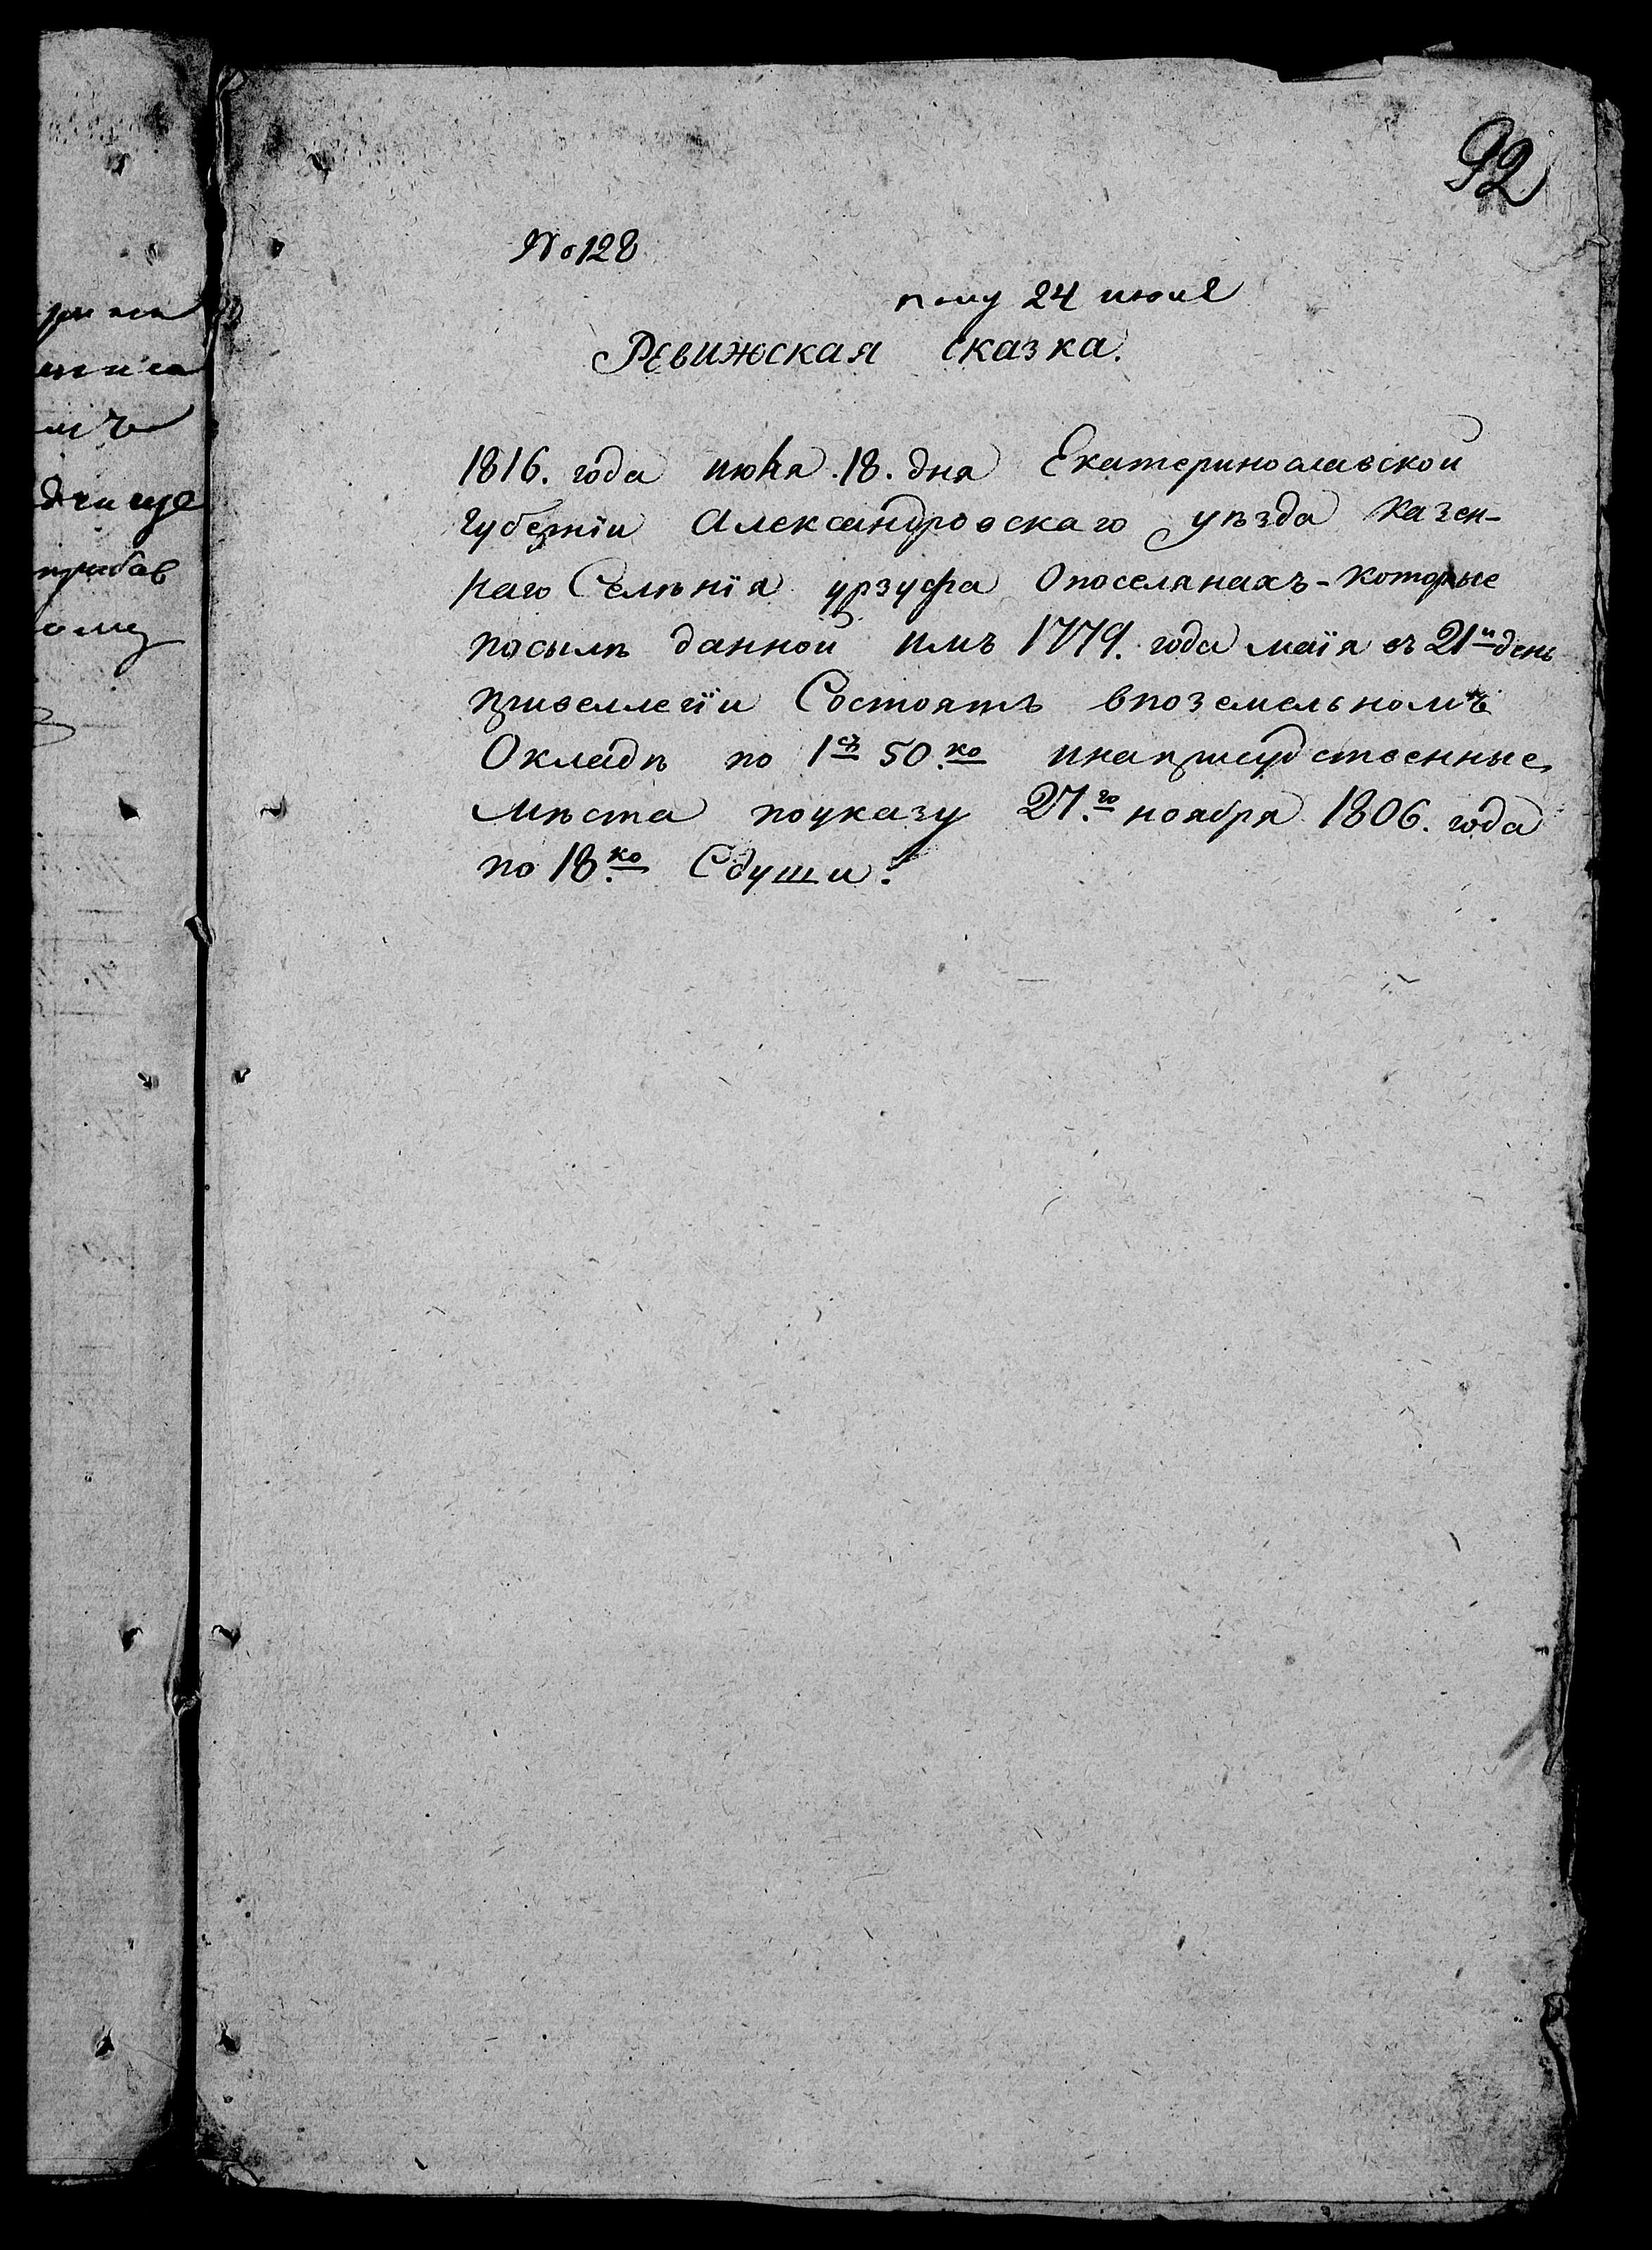 92
№ 128
24 июня
Ревижская сказка.
1816. года июня 18. дня Екатеринославской
губернїи Александровскаго уѣзда казен-
наго Селѣнїя урзуфа Опоселянахъ - которые
посылѣ данной имъ 1779. года маїя въ 21й день
привеллегїи Состоятъ впоземельномъ
Окладѣ по 1 50. ко инаприсудственные
мѣста поуказу 27.го ноября 1806. года
по 18. ко Сдуши.